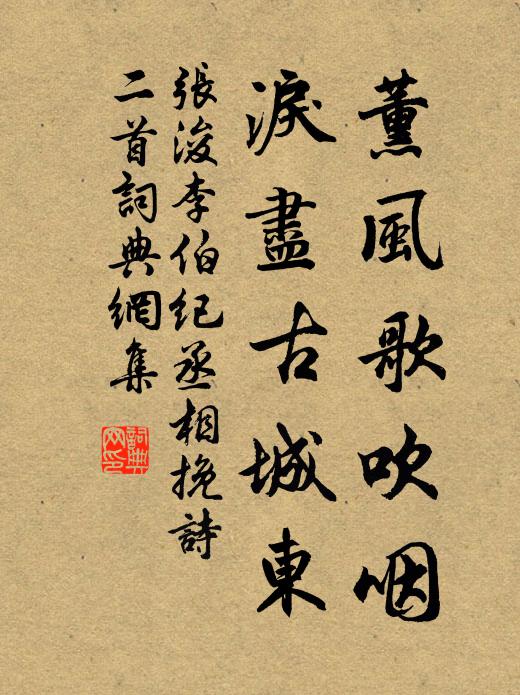 薰風歌吹咽
淚盡古城東
張浚李伯紀丞相挽詩
二首詞典網集
詞典網印